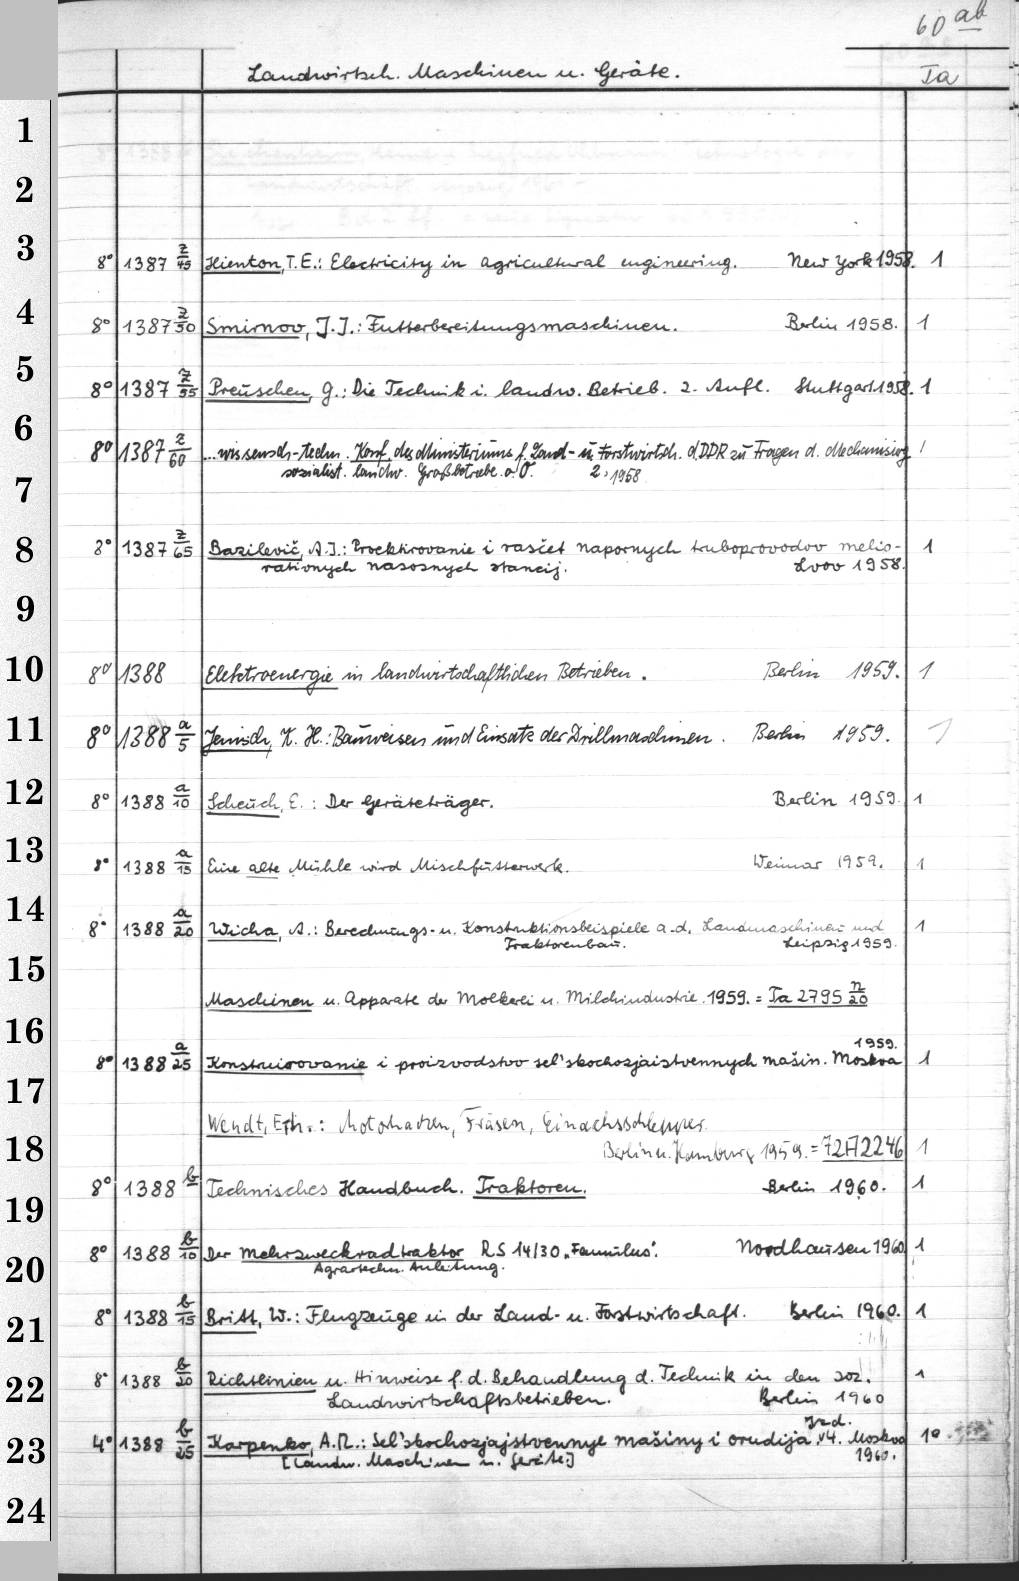 60 ab
Landwirtsch. Maschinen u. Geräte.
Ta
1
2
3
8° 1387 z/45 Hienton, T.E.: Electricity in agricultural engineering. New York 1958. 1
4
8° 1387 z/50 Smirnov, J.J.: Futterbereitungsmaschinen. Berlin 1958. 1
5
8° 1387 z/55 Preuschen, G.: Die Technik i. landw. Betrieb. 2. Aufl. Stuttgart 1958. 1
6
8° 1387 z/60 ...wissensch-techn. Konf. des Ministeriums f. Land- u. Forstwirtsch. d. DDR zu Fragen d. Mechanisierg 1
7
sozialist. landw. Großbetriebe. o.O. 2, 1958
8
8° 1387 z/65 Bazilevič, A.J.: Proektirovanie i rasčet napornych truboprovodov melio- 1
rativnych nasosnych stancij. Lvov 1958.
9
10
8° 1388 Elektroenergie in landwirtschaftlichen Betrieben. Berlin 1959. 1
11
8° 1388 a/5 Jänisch, K. H.: Bauweisen und Einsatz der Drillmaschinen. Berlin 1959. 1
12
8° 1388 a/10 Scheuch, E.: Der Geräteträger. Berlin 1959. 1
13
8° 1388 a/15 Eine alte Mühle wird Mischfutterwerk. Weimar 1959. 1
14
8° 1388 a/20 Wicha, A.: Berechnungs- u. Konstruktionsbeispiele a.d. Landmaschinen und 1
Traktorenbau. Leipzig 1959.
15
Maschinen u. Apparate der Molkerei u. Milchindustrie. 1959. = Ta 2795 n/20
16
1959.
8° 1388 a/25 Konstruirovanie i proizvodstvo sel'skochozjaistvennych mašin. Moskva 1
17
Wendt, Eth.: Motorhacken, Fräsen, Einachsschlepper.
18
Berlin u. Hamburg 1959. = 72A2246 1
8° 1388 b Technisches Handbuch. Traktoren. Berlin 1960. 1
19
8° 1388 b/10 Der Mehrzweckradtraktor RS 14/30 „Famulus“. Nordhausen 1960 1
20
Agrartechn. Anleitung.
21
8° 1388 b/15 Britt, W.: Flugzeuge in der Land- u. Forstwirtschaft. Berlin 1960. 1
22
8° 1388 b/20 Richtlinien u. Hinweise f. d. Behandlung d. Technik in den soz. 1
Landwirtschaftsbetrieben. Berlin 1960
23
4° 1388 b/25 Karpenko, A.N.: Sel'skochozjajstvennye mašiny i orudija. Izd. 4. Moskva 1
[Landw. Maschinen u. Geräte.] 1960.
24